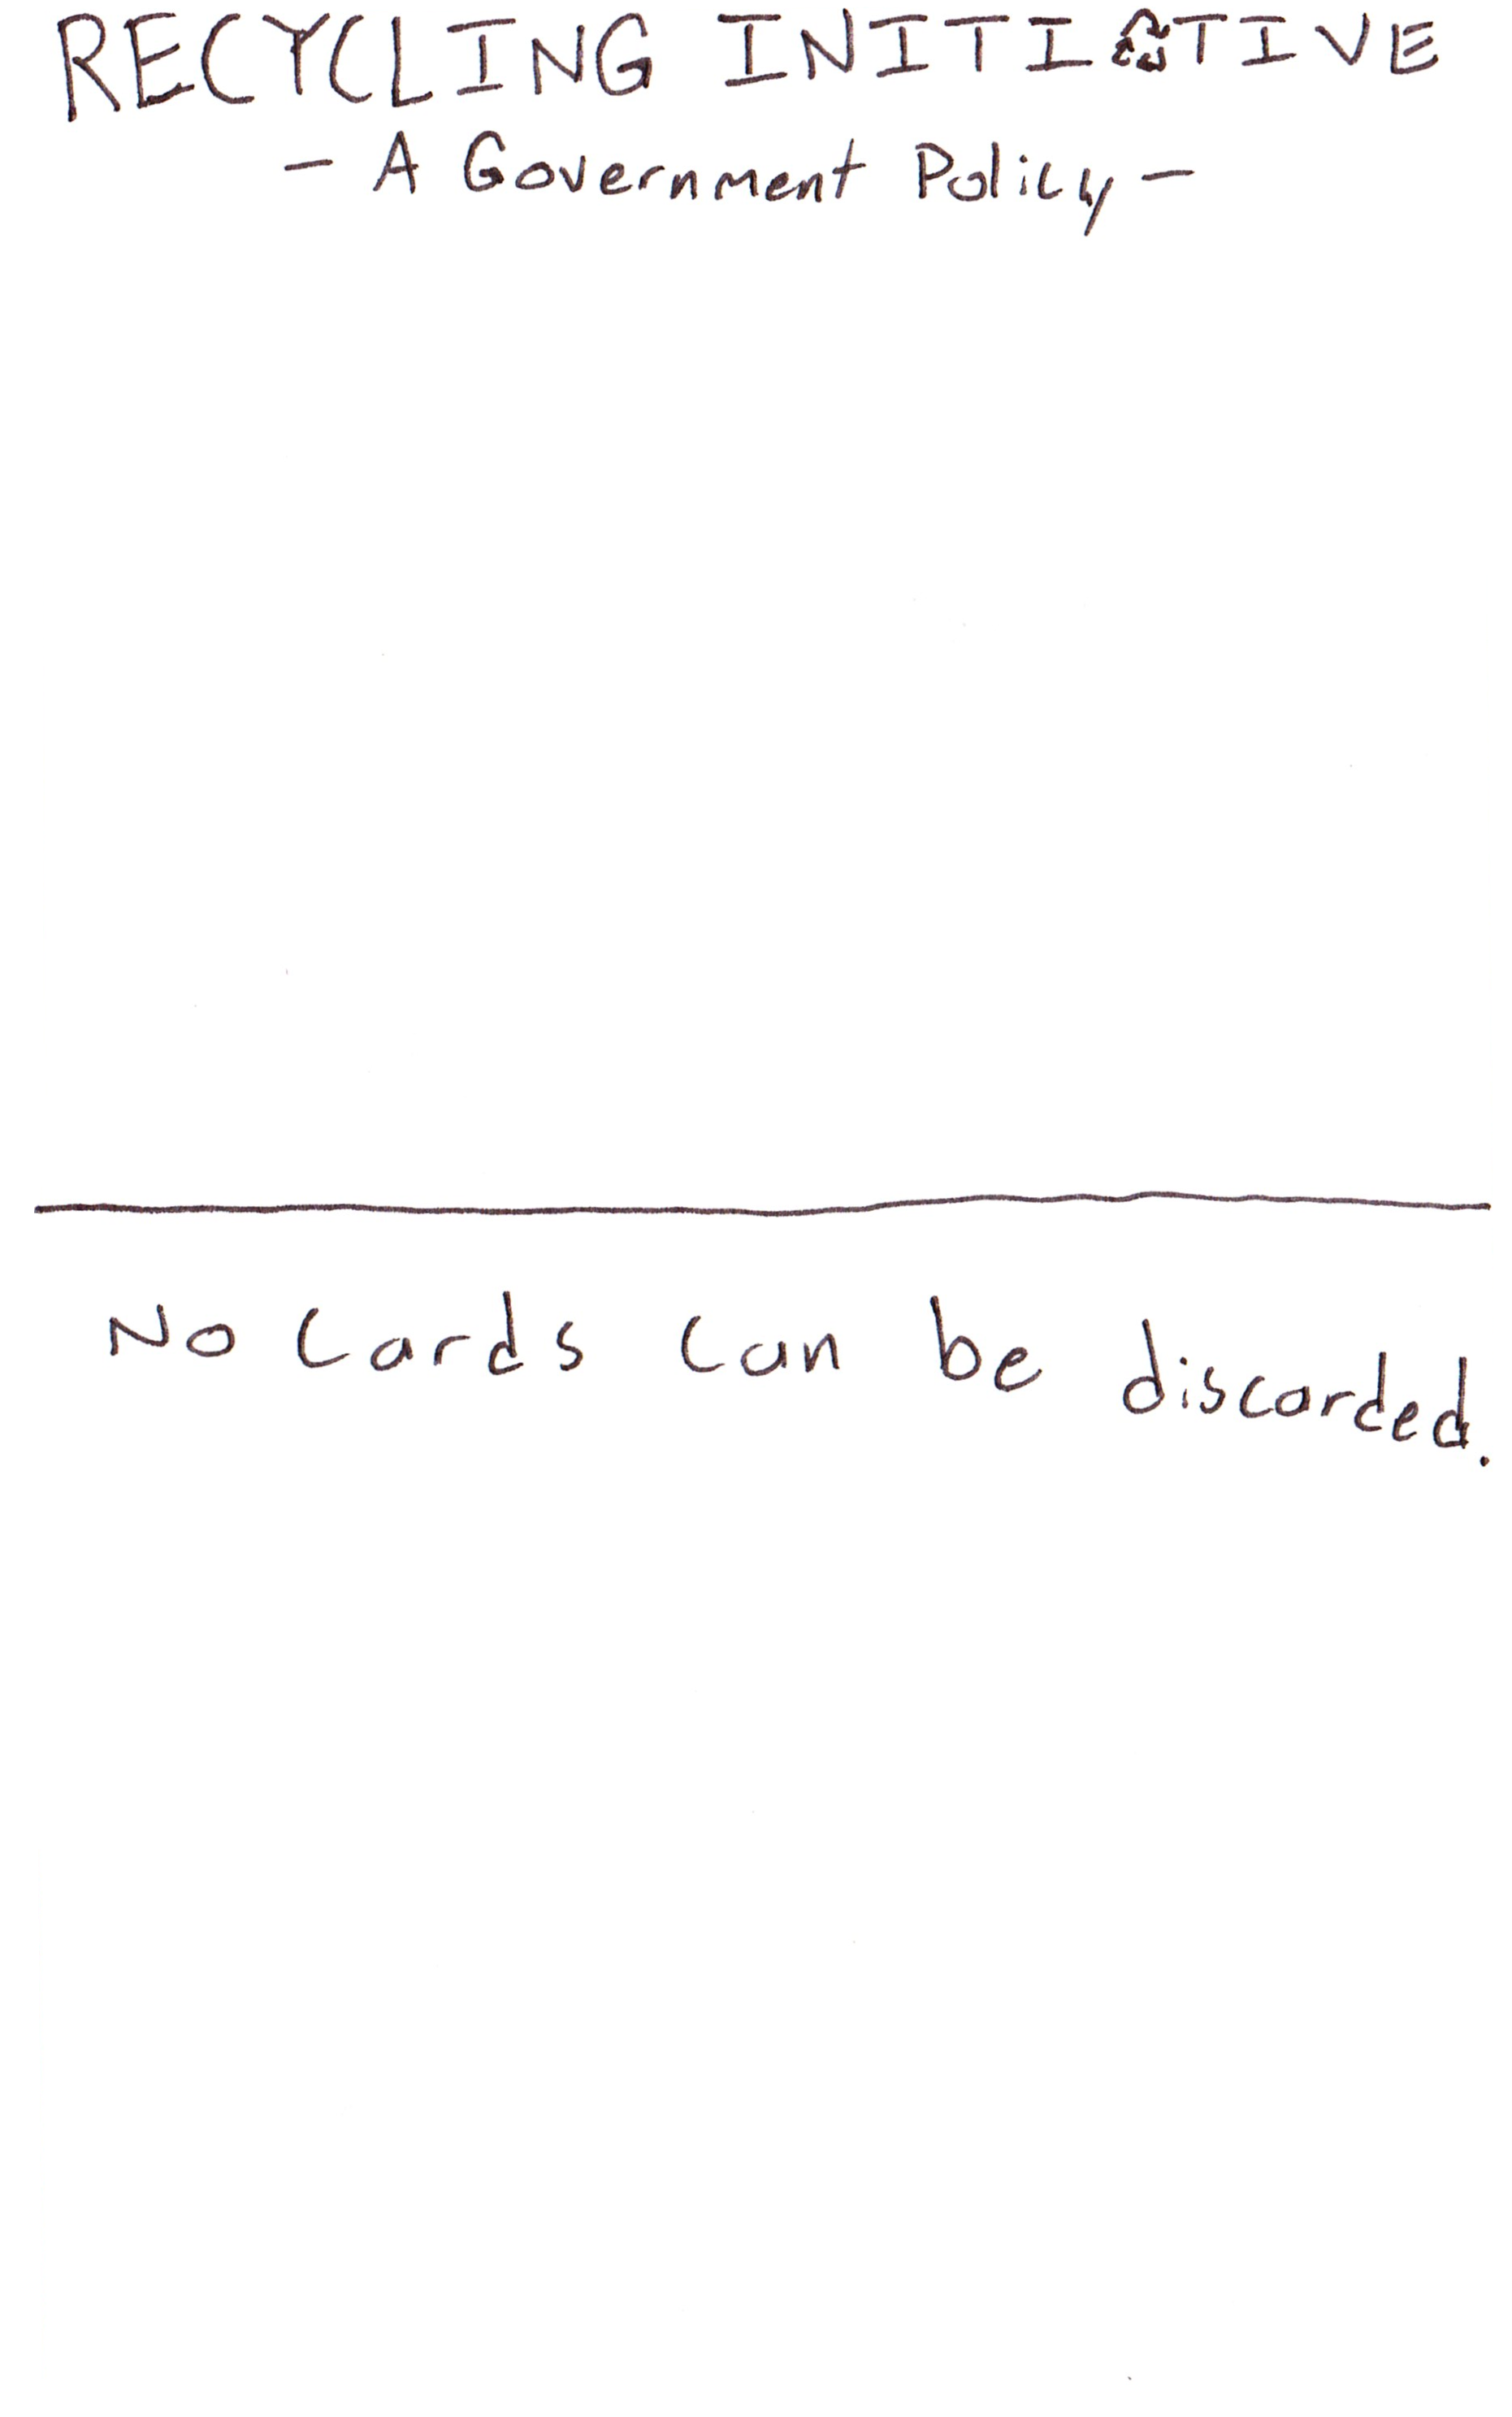 RECYCLING INITI♻TIVE
- A Government Policy -
No Cards can be discarded.